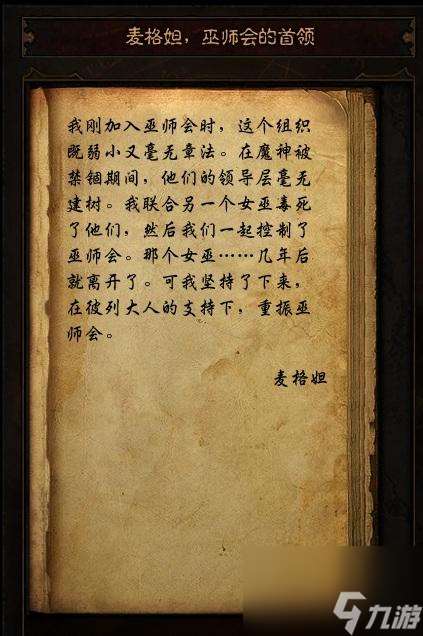 麦格妲，巫师会的首领
我刚加入巫师会时，这个组织
既弱小又毫无章法。在魔神被
禁锢期间，他们的领导层毫无
建树。我联合另一个女巫毒死
了他们，然后我们一起控制了
巫师会。那个女巫……几年后
就离开了。可我坚持了下来，
在彼列大人的支持下，重振巫
师会。
麦格妲
九游